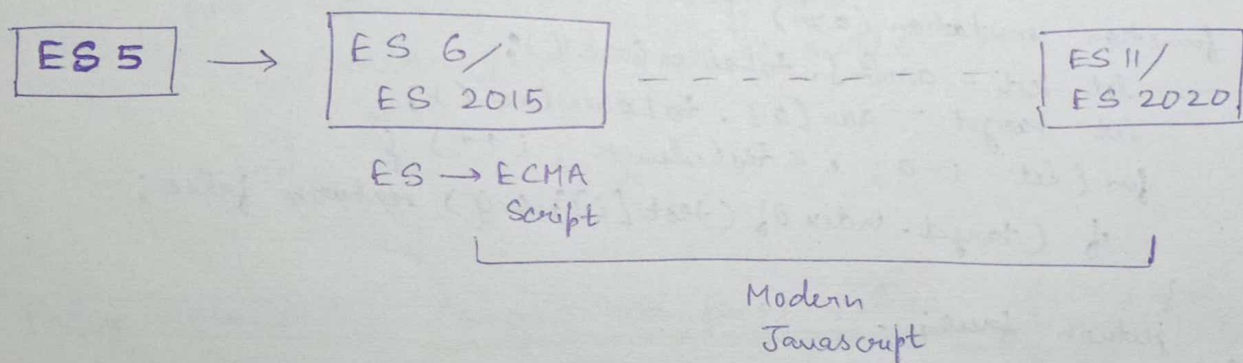 ES 5 → ES 6/ ES 2015 - - - - - - - ES 11/ ES 2020
ES → ECMA
Script
Modern
Javascript